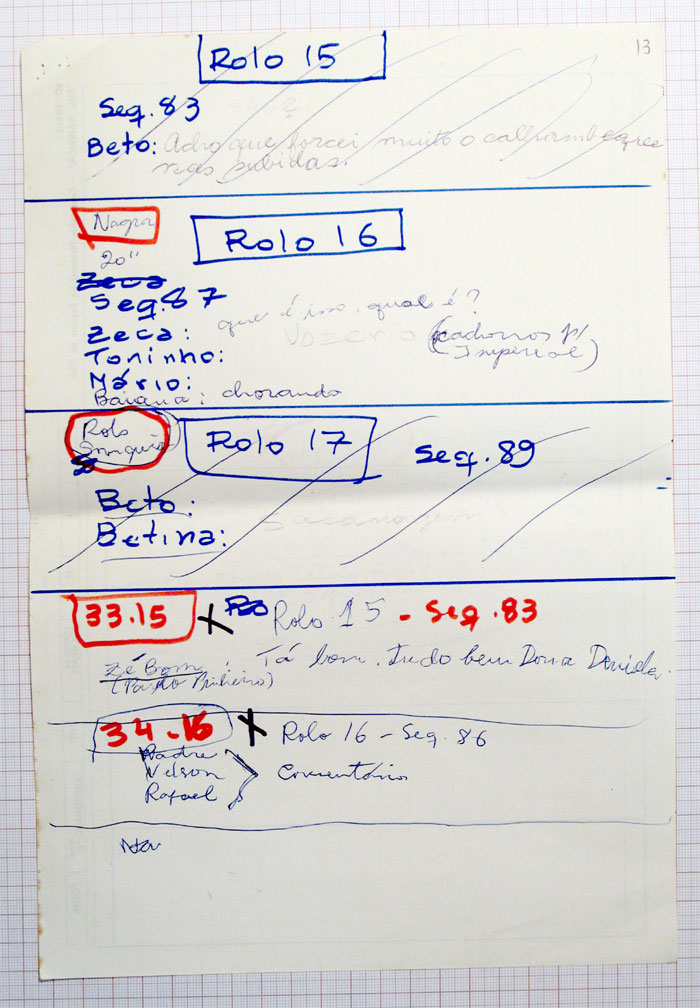 13
Rolo 15
Seq. 83
Beto: Acho que forcei muito o calhambeque
nas subidas.
Nagra
Rolo 16
20"
Zeca
Seq. 87
que é isso, qual é?
Zeca:
Vozerio (cachorros p/
Imperial)
Toninho:
Mário:
Baiana: chorando
Rolo
Rolo 17
Seq. 89
Beto:
Betina:
33.15 x Rolo 15 - Seq. 83
Zé Bom: Tá bom. Tudo bem Dona
(Paulo Pinheiro)
34-16 x Rolo 16 - Seq. 86
Padre
Nelson
Comentários
Rafael